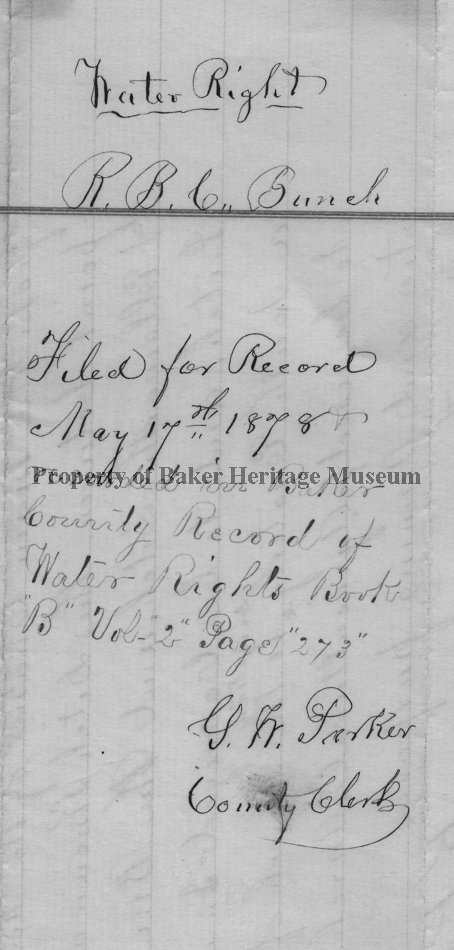 Water Right
R. B. C. Bunch
Filed for Record
May 17th 1878
Property of Baker Heritage Museum
Recorded in Baker
County Record of
Water Rights Book
"B" Vol-"2" Page "273"
G. W. Parker
County Clerk